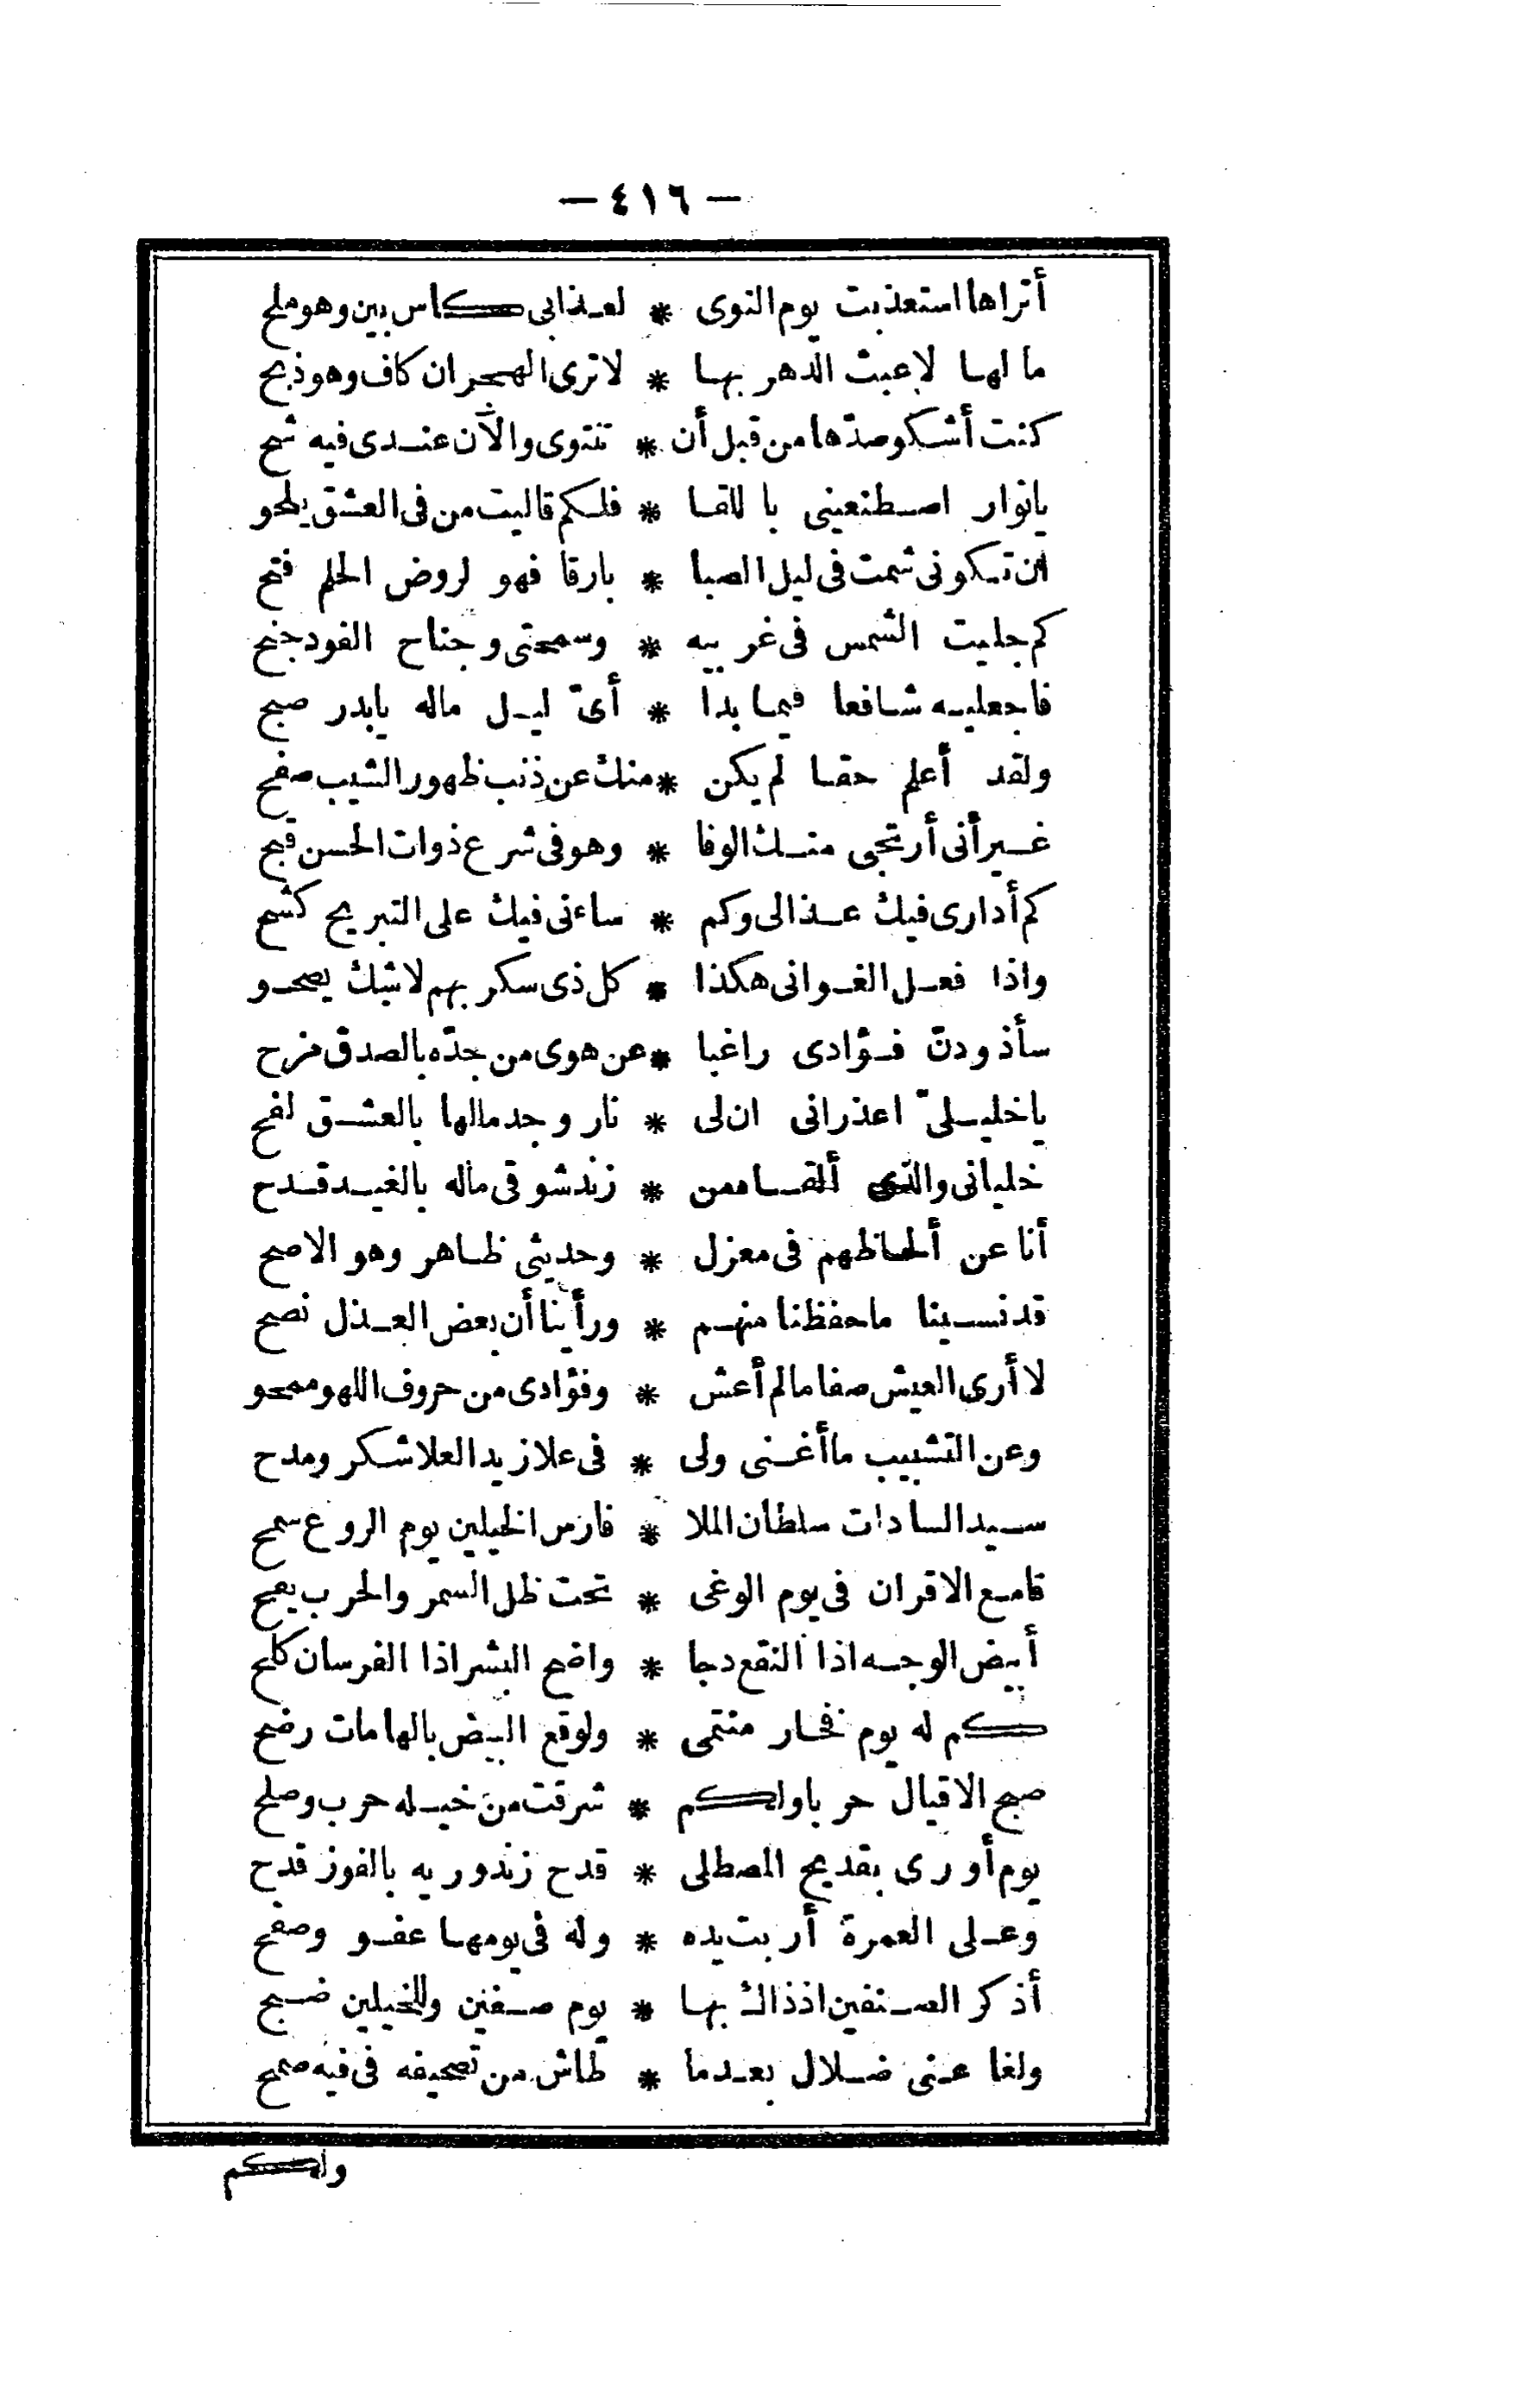 — ٤١٦ —
أتراها استعذبت يوم النوى * لعذابى كاس بين وهو ملح
ما لها لا عبث الدهر بها * لا ترى الهجران كاف وهو ذبح
كنت أشكو صدّها من قبل أن * تنتوى والآن عندى فيه شح
يا نوار اصطنعينى با للقا * فلكم قاليت من فى العشق يلحو
ان تكونى شمت فى ليل الصبا * بارقا فهو لروض الحلم فتح
كم جليت الشمس فى غربيه * وسمحتى وجناح الفود جنح
فاجعليه شافعا فيما بدا * أىّ ليل ماله يابدر صبح
ولقد أعلم حقا لم يكن * منك عن ذنب ظهور الشيب صفح
غير أنى أرتجى منك الوفا * وهو فى شرع ذوات الحسن قبح
كم أدارى فيك عذالى وكم * ساءنى فيك على التبريح كشح
واذا فعل الغوانى هكذا * كل ذى سكر بهم لاشك يصحو
سأذودنّ فؤادى راغبا * عن هوى من جدّه بالصدق مزح
يا خليلىّ اعذرانى ان لى * نار وجد مالها بالعشق لفح
خليانى والذى ألقاه من * زند شوقى ماله بالغيد قدح
أنا عن ألحاظهم فى معزل * وحديثى ظاهر وهو الاصح
قد نسينا ما حفظنا منهم * ورأينا أن بعض العذل نصح
لا أرى العيش صفا مالم أعش * وفؤادى من حروف اللهو ممحو
وعن التشبيب ما أغنى ولى * فى علا زيد العلا شكر ومدح
سيد السادات سلطان الملا * فارس الخيلين يوم الروع سمح
قامع الاقران فى يوم الوغى * تحت ظل السمر والحرب يصح
أبيض الوجه اذا النقع دجا * واضح البشر اذا الفرسان كلح
كم له يوم فخار منتمى * ولوقع البيض بالهامات رضح
صبح الاقيال حربا ولكم * شرقت من خيله حرب وصلح
يوم أورى بقديح المصطلى * قدح زند وريه بالفوز قدح
وعلى العمرة أربت يده * وله فى يومها عفو وصفح
أذكر الصنفين اذ ذاك بها * يوم صفين وللخيلين ضبح
ولغا عنى ضلال بعدما * طاش من تصحيفه فى فيه صمح
ولكم